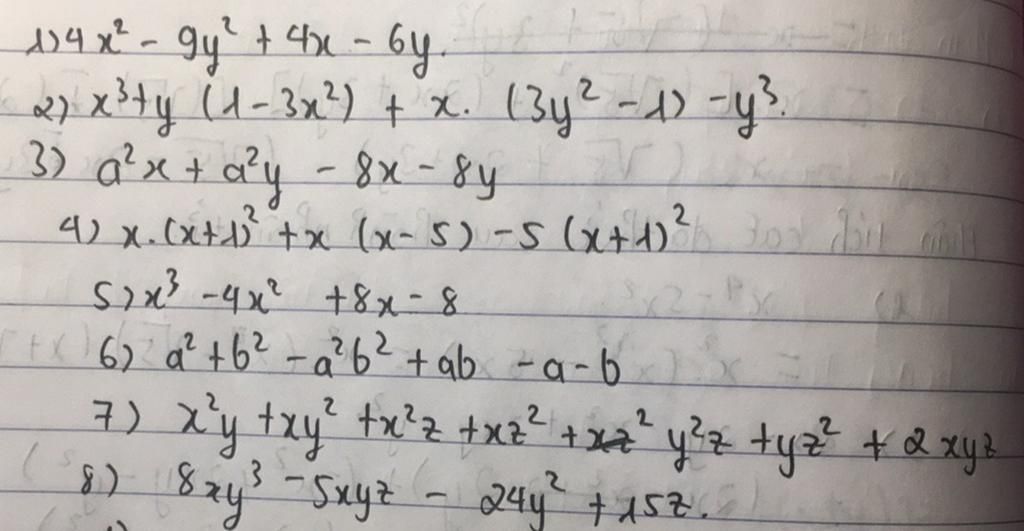 1) 4x² - 9y² + 4x - 6y.
2) x³+y (1-3x²) + x. (3y² - 1) - y³.
3) a²x + a²y - 8x - 8y
4) x.(x+1)² + x (x-5) - 5 (x+1)²
5) x³ - 4x² + 8x - 8
6) a² + b² - a²b² + ab - a - b
7) x²y + xy² + x²z + xz² + y²z + yz² + 2xyz
8) 8xy³ - 5xyz - 24y² + 15z.